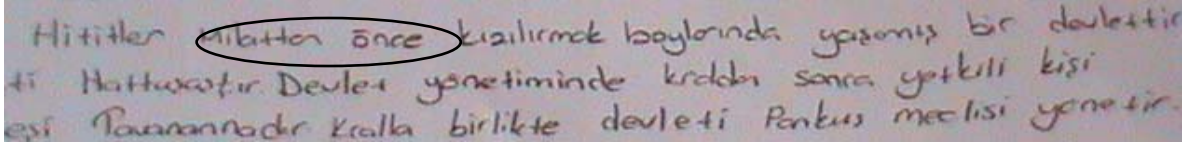 Hititler Milattan önce Kızılırmak boylarında yaşamış bir devlettir
ti Hattuşaştır. Devlet yönetiminde kraldan sonra yetkili kişi
eşi Tavanannadır Kralla birlikte devleti Pankuş meclisi yönetir.